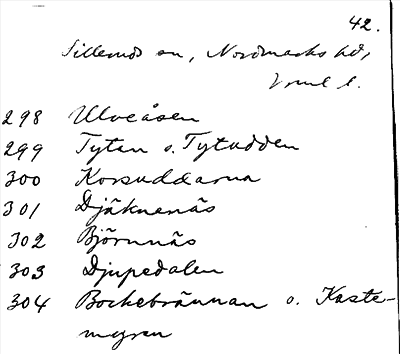 42.
Sillerud sn, Nordmarks hd,
Vrml l.
298 Ulveåsen
299 Tytan o. Tytudden
300 Korsuddarna
301 Djäknenäs
302 Björnnäs
303 Djupedalen
304 Bockebrännan o. Kaste-
myren